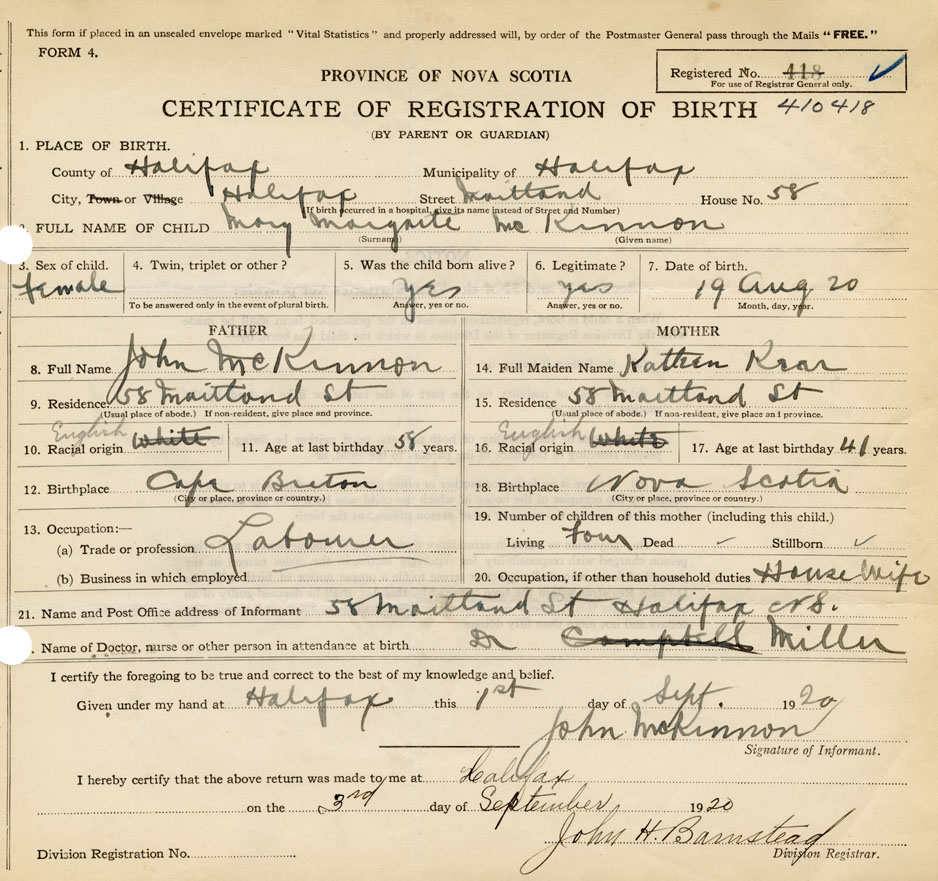 This form if placed in an unsealed envelope marked "Vital Statistics" and properly addressed will, by order of the Postmaster General pass through the Mails "FREE."
FORM 4.
Registered No. 418
For use of Registrar General only.
PROVINCE OF NOVA SCOTIA
CERTIFICATE OF REGISTRATION OF BIRTH 410418
(BY PARENT OR GUARDIAN)
1. PLACE OF BIRTH.
County of Halifax Municipality of Halifax
City, Town or Village Halifax Street Maitland House No. 58
(If birth occurred in a hospital, give its name instead of Street and Number)
FULL NAME OF CHILD Mary Margrite McKinnon
(Surname) (Given name)
3. Sex of child. 4. Twin, triplet or other? 5. Was the child born alive? 6. Legitimate? 7. Date of birth.
female yes yes 19 Aug 20
To be answered only in the event of plural birth. Answer, yes or no. Answer, yes or no. Month, day, year.
FATHER MOTHER
8. Full Name John McKinnon 14. Full Maiden Name Kathen Krar
9. Residence. 58 Maitland St 15. Residence 58 Maitland St
(Usual place of abode.) If non-resident, give place and province. (Usual place of abode.) If non-resident, give place and province.
English English
10. Racial origin White 11. Age at last birthday 58 years. 16. Racial origin White 17. Age at last birthday 41 years.
12. Birthplace Cape Breton 18. Birthplace Nova Scotia
(City or place, province or country.) (City or place, province or country.)
13. Occupation:— 19. Number of children of this mother (including this child.)
(a) Trade or profession Labourer Living four Dead Stillborn
(b) Business in which employed 20. Occupation, if other than household duties House Wife
21. Name and Post Office address of Informant 58 Maitland St Halifax N.S.
Name of Doctor, nurse or other person in attendance at birth Dr Campbell Miller
I certify the foregoing to be true and correct to the best of my knowledge and belief.
Given under my hand at Halifax this 1st day of Sept. 1920
John McKinnon
Signature of Informant.
I hereby certify that the above return was made to me at Halifax
on the 3rd day of September 1920
John H. Barnstead
Division Registration No. Division Registrar.